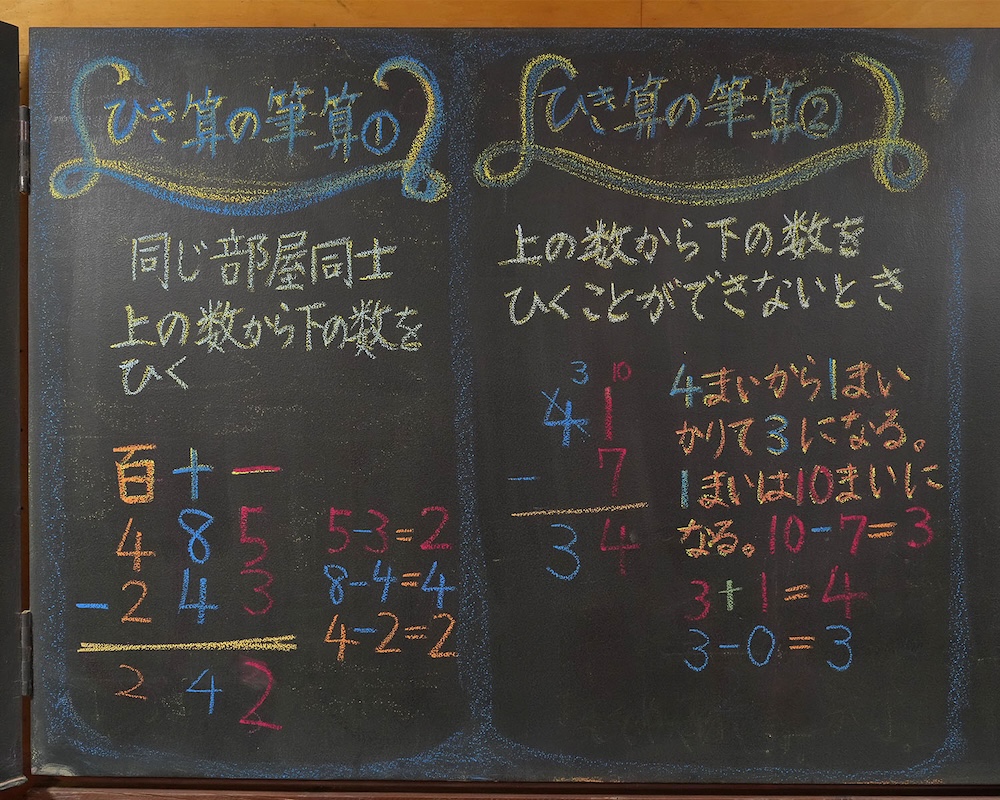 ひき算の筆算①
同じ部屋同士
上の数から下の数を
ひく
百十一
485
-243
242
5-3=2
8-4=4
4-2=2
ひき算の筆算②
上の数から下の数を
ひくことができないとき
3 10
41
- 7
34
4まいから1まい
かりて3になる。
1まいは10まいに
なる。10-7=3
3+1=4
3-0=3